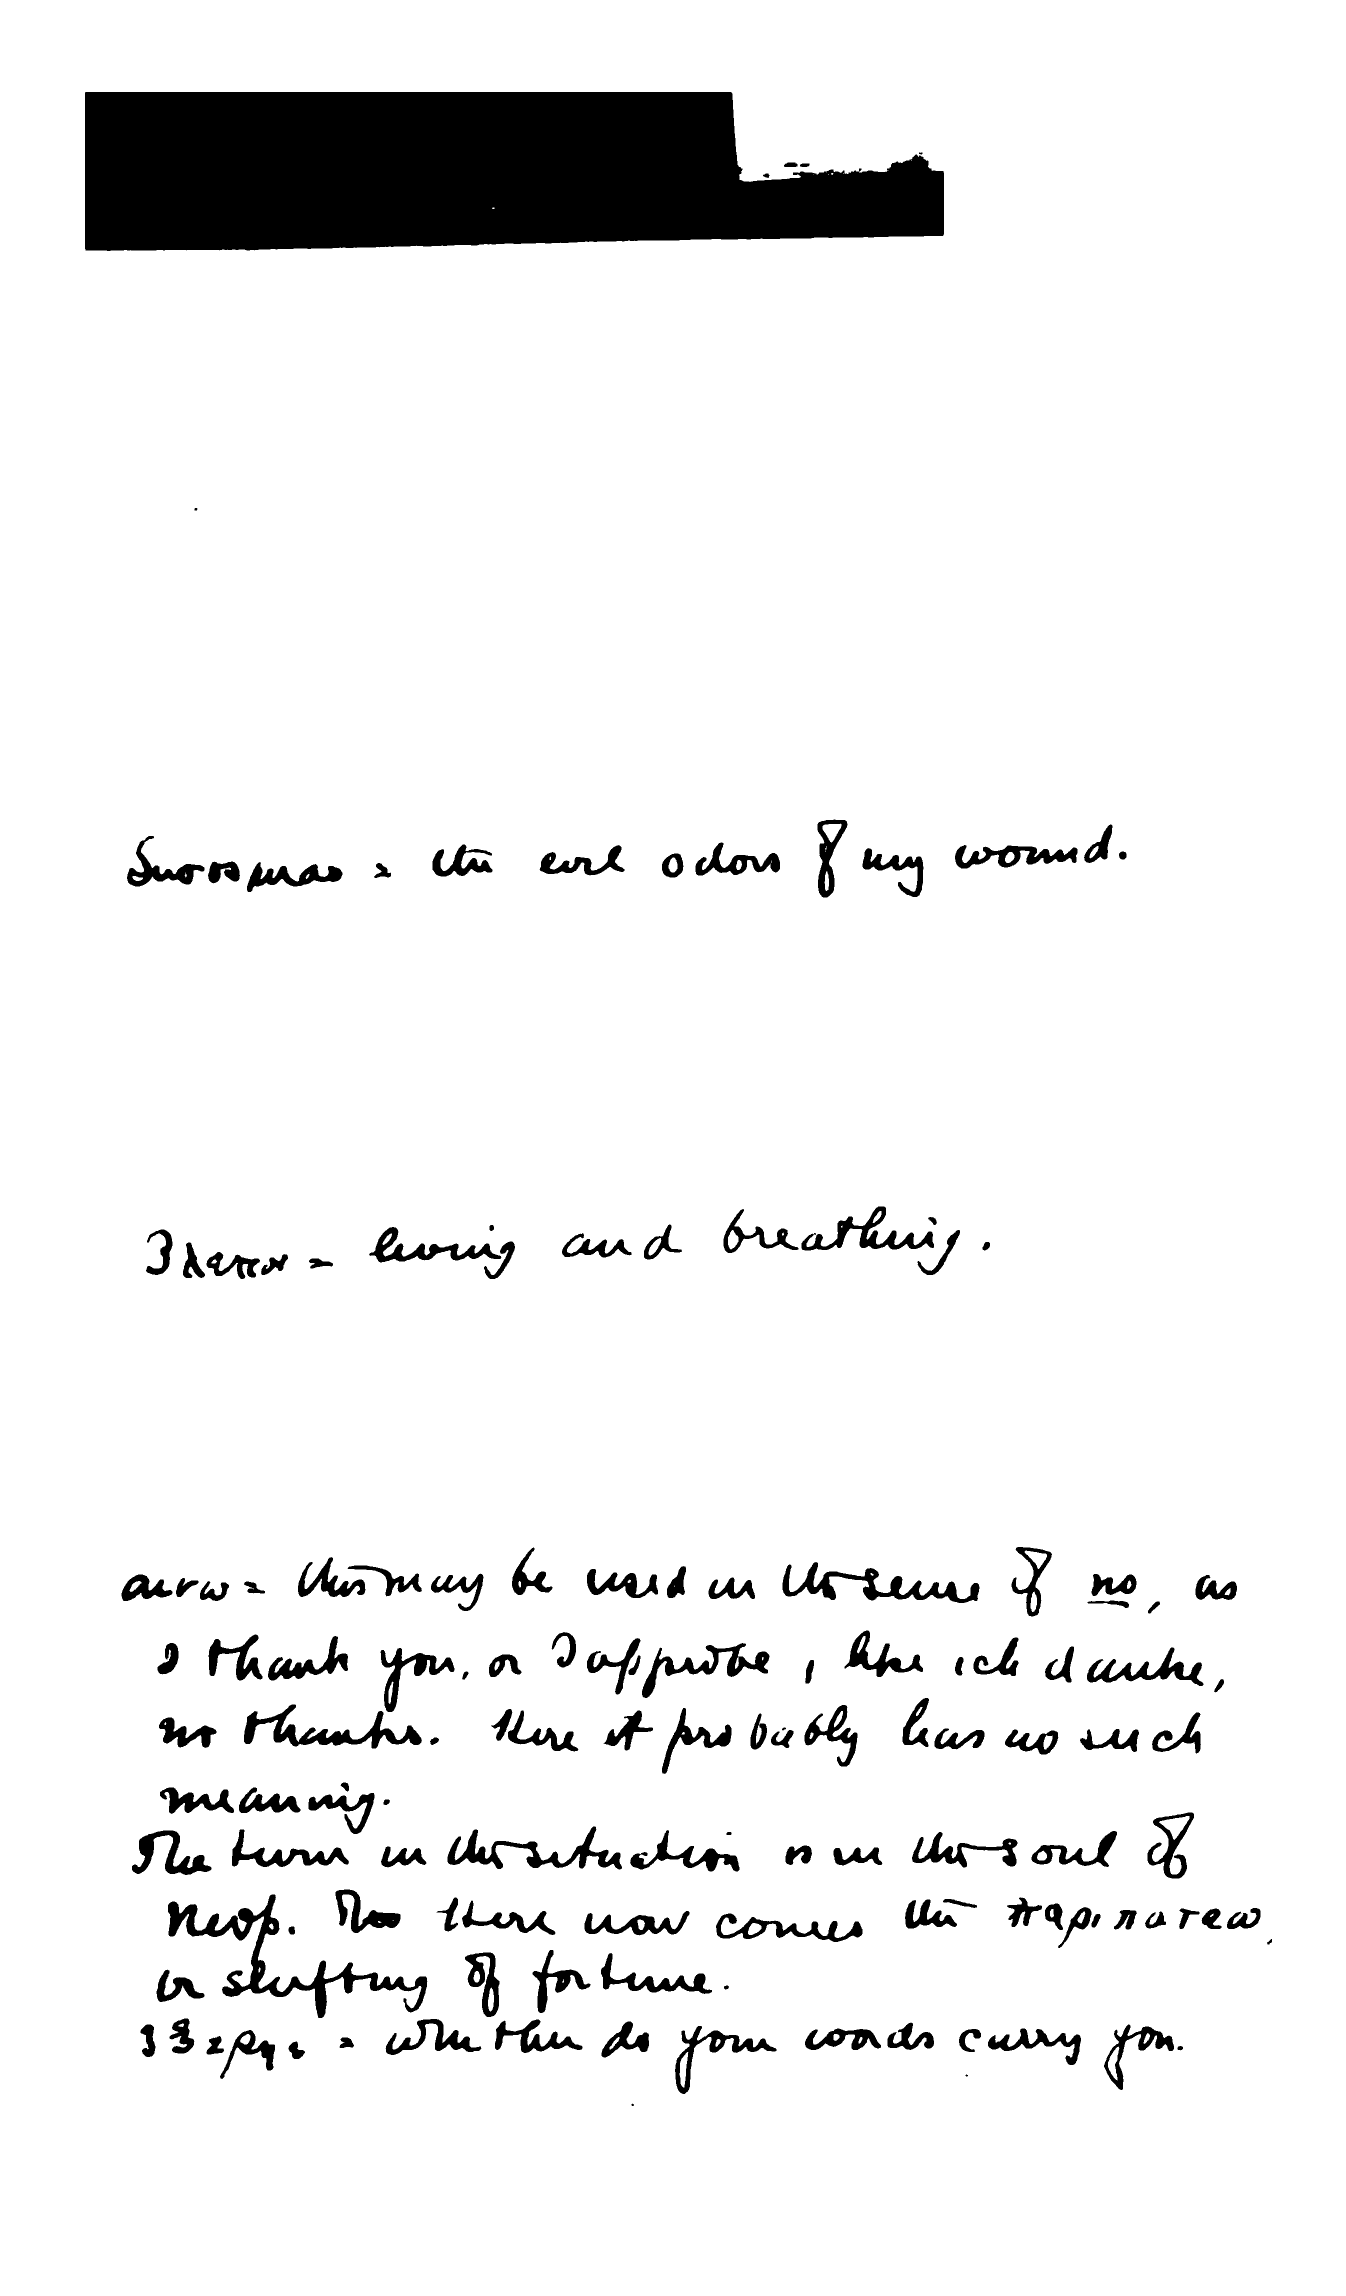 δυσοσμιαs = the evil odors of my wound.
βλεπον = living and breathing.
αινω = this may be used in the sense of no, as
I thank you, or I approve, like ich danke,
no thanks. Here it probably has no such
meaning.
The turn in the situation is in the soul of
Neop. Here now comes the περιπατεω,
or shifting of fortune.
εξερηs = whether do your words carry you.